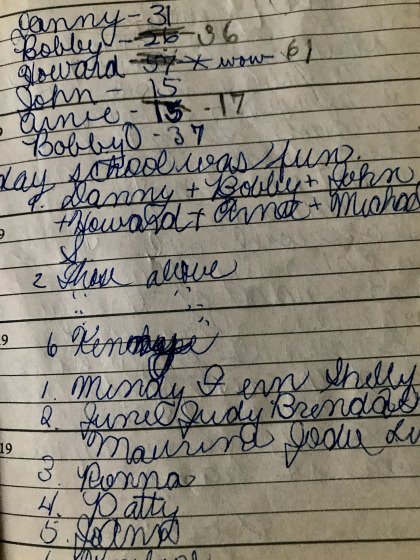 Danny - 31
Bobby - 26 36
Howard 57 * wow 61
John - 15
Arnie - 15 - 17
Bobby O - 37
day school was fun.
1. Danny + Bobby + John
+ Howard + Arnie + Michael
S
2 Those above
19
6 Ken
1. Mindy Fern Shelly
2. June Judy Brenda S
19
Maurine Jodie
3. Ronna
4. Patty
5. JoAnn